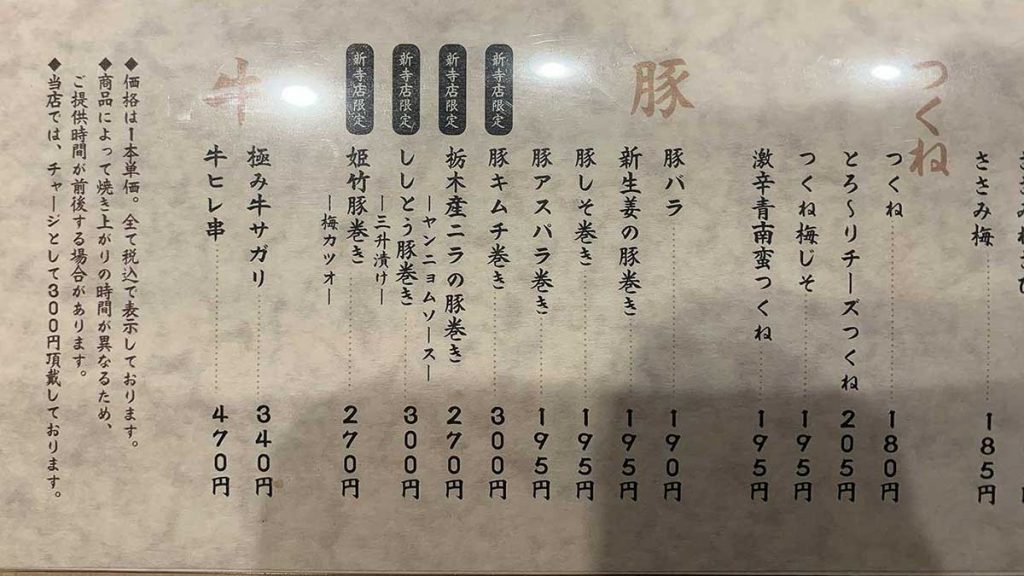 ささみ梅 185円
つくね
つくね 180円
とろ〜りチーズつくね 205円
つくね梅じそ 195円
激辛青南蛮つくね 195円
豚
豚バラ 190円
新生姜の豚巻き 195円
豚しそ巻き 195円
豚アスパラ巻き 195円
新寺店限定 豚キムチ巻き 300円
新寺店限定 栃木産ニラの豚巻き 270円
―ヤンニョムソース―
新寺店限定 ししとう豚巻き 300円
―三升漬け―
新寺店限定 姫竹豚巻き 270円
―梅カツオ―
牛
極み牛サガリ 340円
牛ヒレ串 470円
◆価格は1本単価。全て税込で表示しております。
◆商品によって焼き上がりの時間が異なるため、
ご提供時間が前後する場合があります。
◆当店では、チャージとして300円頂戴しております。